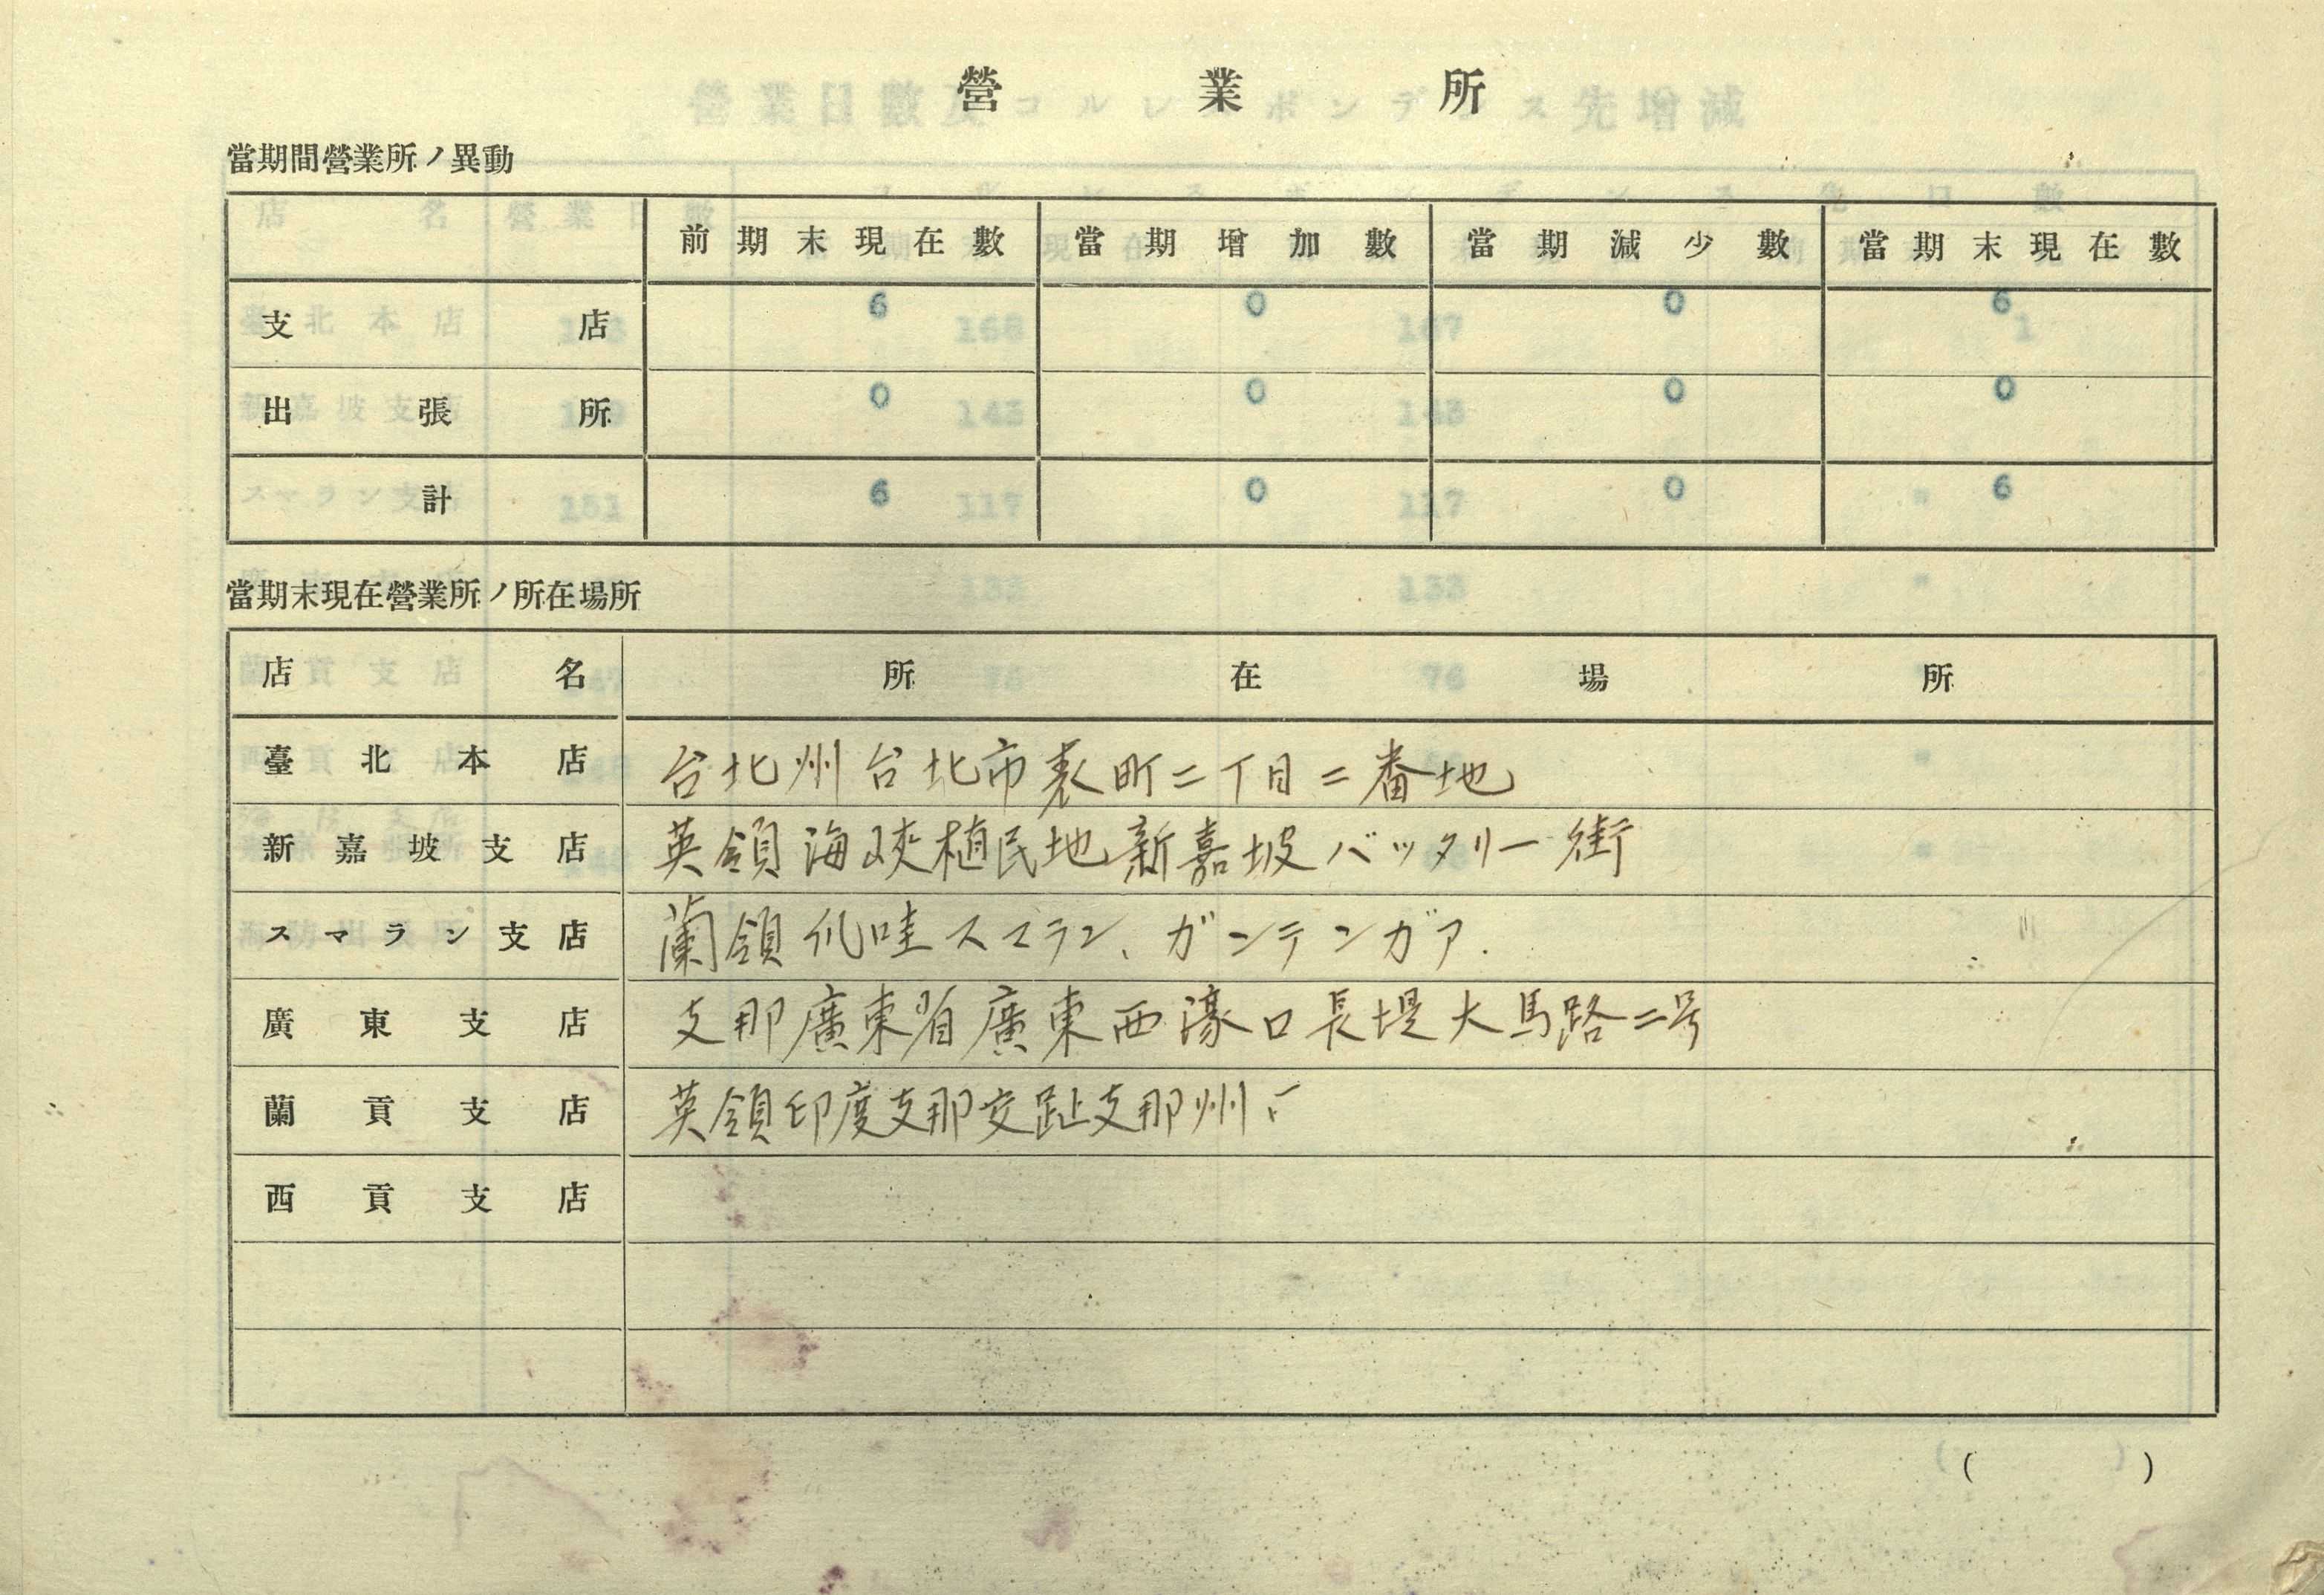 營業所
當期間營業所ノ異動
前期末現在數 當期增加數 當期減少數 當期末現在數
支店 6 0 0 6
出張所 0 0 0 0
計 6 0 0 6
當期末現在營業所ノ所在場所
店名 所在場所
臺北本店 台北州台北市表町二丁目二番地
新嘉坡支店 英領海峽植民地新嘉坡バッタリー街
スマラン支店 蘭領爪哇スマラン、ガンテンガア.
廣東支店 支那廣東省廣東西濠口長堤大馬路二号
蘭貢支店 英領印度支那交趾支那州
西貢支店
( )